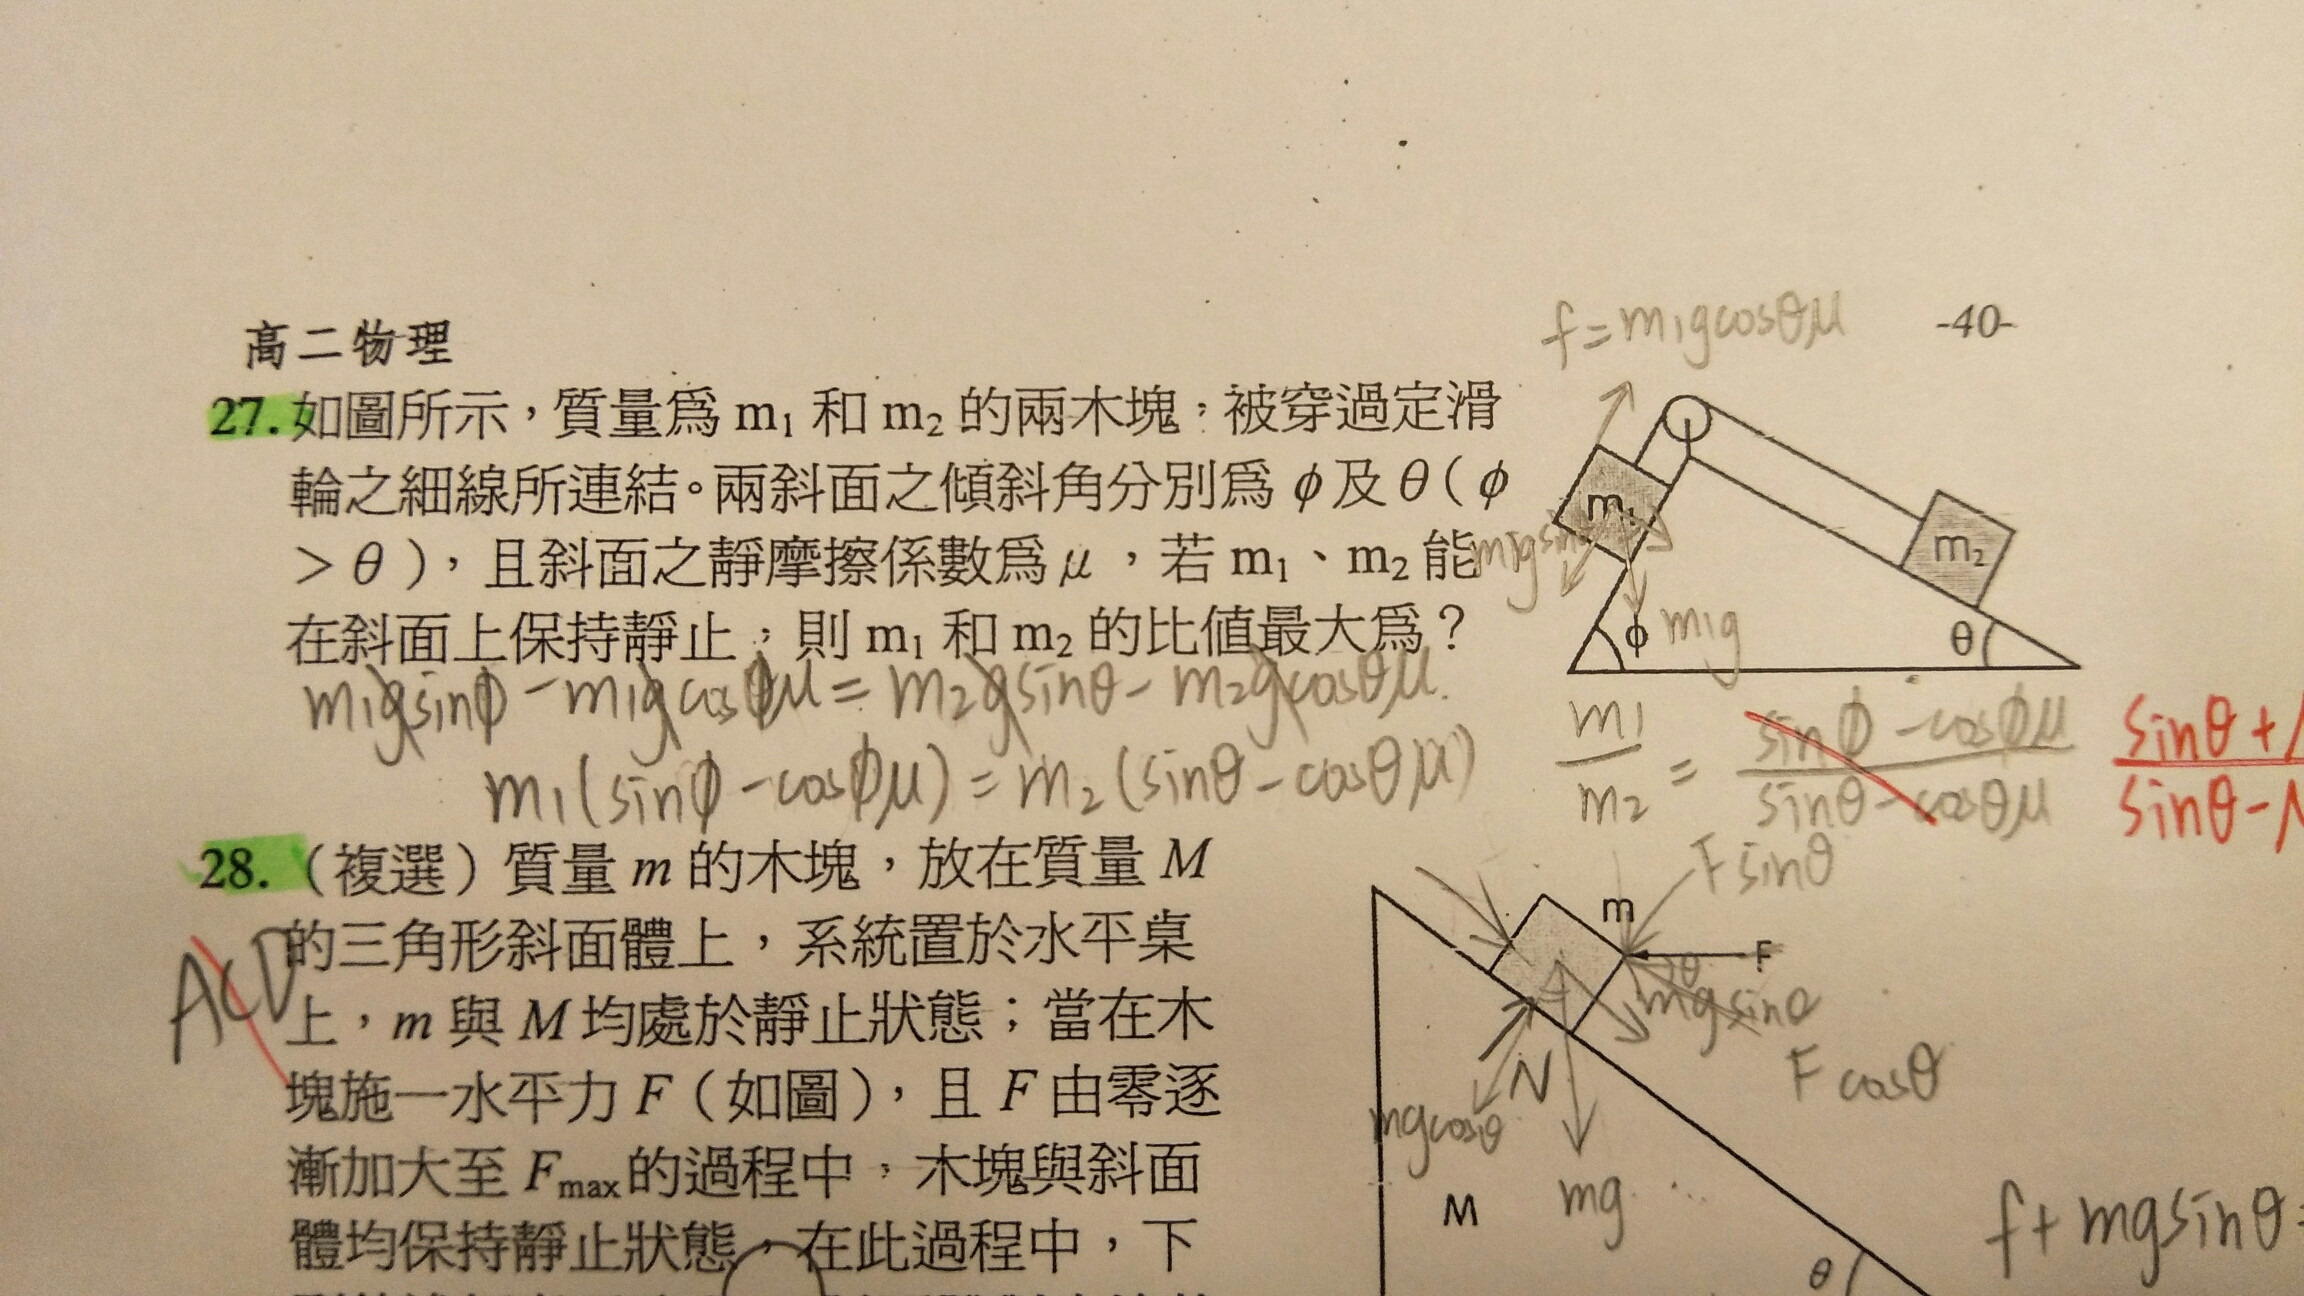 高二物理
-40-
f=m1gcosθμ
27.如圖所示，質量爲 m₁ 和 m₂ 的兩木塊，被穿過定滑
輪之細線所連結。兩斜面之傾斜角分別爲 φ 及 θ（φ
>θ），且斜面之靜摩擦係數爲 μ ，若 m₁、m₂ 能
在斜面上保持靜止，則 m₁ 和 m₂ 的比值最大爲？
m₁
m₂
m1g
φ
θ
m1gsinφ-m1gcosφμ=m2gsinθ-m2gcosθμ.
m1(sinφ-cosφμ)=m2(sinθ-cosθμ)
m1/m2 = sinφ-cosφμ/sinθ-cosθμ
sinθ+
sinθ-
28.（複選）質量 m 的木塊，放在質量 M
的三角形斜面體上，系統置於水平桌
上，m 與 M 均處於靜止狀態；當在木
塊施一水平力 F（如圖），且 F 由零逐
漸加大至 Fmax的過程中，木塊與斜面
體均保持靜止狀態，在此過程中，下
ACD
Fsinθ
m
F
θ
mgsinθ
Fcosθ
N
mgcosθ
mg
M
θ
f+mgsinθ=